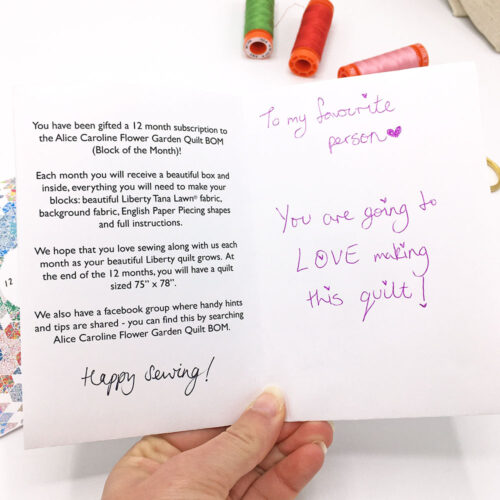 You have been gifted a 12 month subscription to
the Alice Caroline Flower Garden Quilt BOM
(Block of the Month)!
Each month you will receive a beautiful box and
inside, everything you will need to make your
blocks: beautiful Liberty Tana Lawn® fabric,
background fabric, English Paper Piecing shapes
and full instructions.
We hope that you love sewing along with us each
month as your beautiful Liberty quilt grows. At
the end of the 12 months, you will have a quilt
sized 75” x 78”.
We also have a facebook group where handy hints
and tips are shared - you can find this by searching
Alice Caroline Flower Garden Quilt BOM.
Happy Sewing!
To my favourite
person
You are going to
LOVE making
this quilt!
12